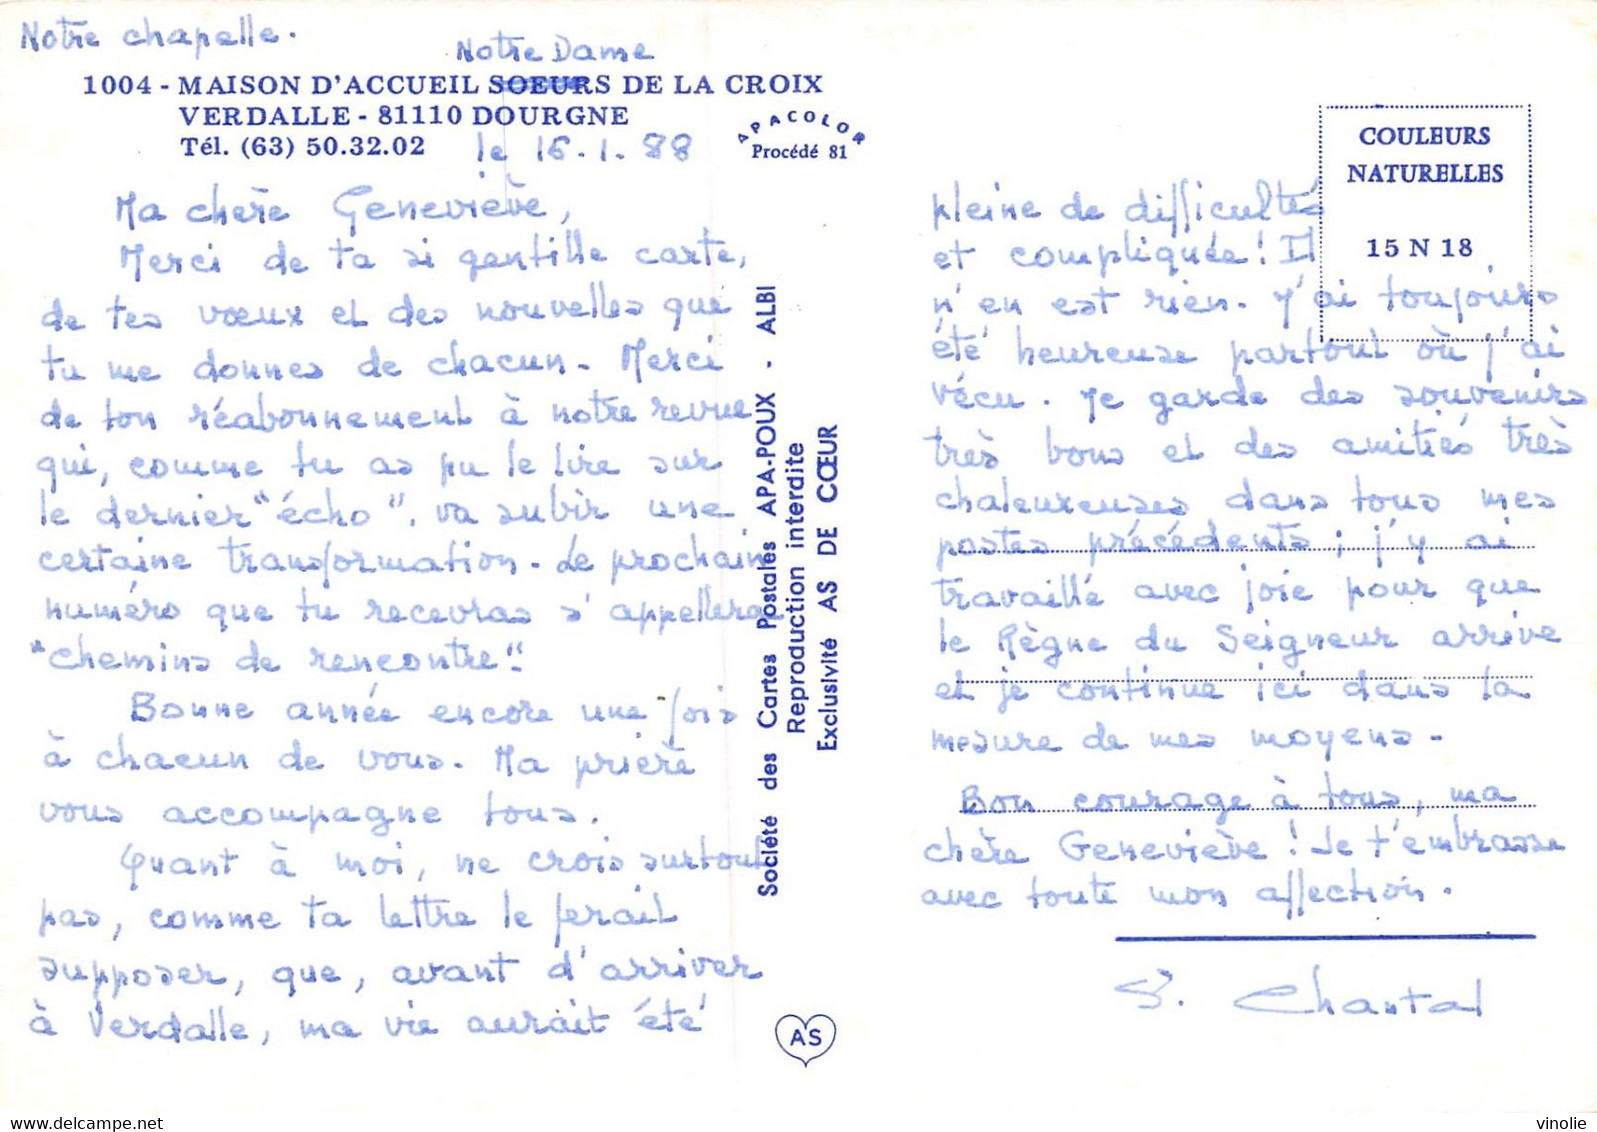 Notre chapelle.
Notre Dame
1004 - MAISON D'ACCUEIL SOEURS DE LA CROIX
VERDALLE - 81110 DOURGNE
Tél. (63) 50.32.02
le 16.1.88
APACOLOR
Procédé 81
Ma chère Geneviève,
Merci de ta si gentille carte,
de tes vœux et des nouvelles que
tu me donnes de chacun. Merci
de ton réabonnement à notre revue
qui, comme tu as pu le lire sur
le dernier "écho", va subir une
certaine transformation. Le prochain
numéro que tu recevras s'appellera
"chemins de rencontre".
Bonne année encore une fois
à chacun de vous. Ma prière
vous accompagne tous.
Quant à moi, ne crois surtout
pas, comme ta lettre le ferait
supposer, que, avant d'arriver
à Verdalle, ma vie aurait été
Société des Cartes Postales APA-POUX - ALBI
Reproduction interdite
Exclusivité AS DE CŒUR
AS
COULEURS
NATURELLES
15 N 18
pleine de difficultés
et compliquée ! Il
n'en est rien. J'ai toujours
été heureuse partout où j'ai
vécu. Je garde des souvenirs
très bons et des amitiés très
chaleureuses dans tous mes
postes précédents ; j'y ai
travaillé avec joie pour que
le Règne du Seigneur arrive
et je continue ici dans la
mesure de mes moyens.
Bon courage à tous, ma
chère Geneviève ! Je t'embrasse
avec toute mon affection.
S. Chantal
vinolie